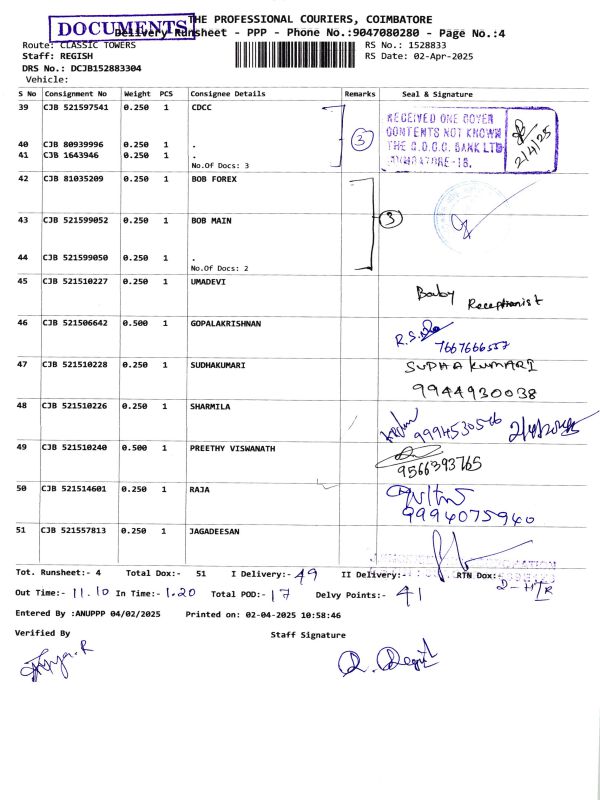 DOCUMENTS
THE PROFESSIONAL COURIERS, COIMBATORE
Delivery Runsheet - PPP - Phone No.:9047080280 - Page No.:4
Route: CLASSIC TOWERS
RS No.: 1528833
Staff: REGISH
RS Date: 02-Apr-2025
DRS No.: DCJB152883304
Vehicle:
S No Consignment No Weight PCS Consignee Details Remarks Seal & Signature
39 CJB 521597541 0.250 1 CDCC
RECEIVED ONE COVER
CONTENTS NOT KNOWN
THE C.D.C.C. BANK LTD
2/4/25
3
40 CJB 80939996 0.250 1 .
41 CJB 1643946 0.250 1 .
No.Of Docs: 3
42 CJB 81035209 0.250 1 BOB FOREX
43 CJB 521599052 0.250 1 BOB MAIN
3
44 CJB 521599050 0.250 1 .
No.Of Docs: 2
45 CJB 521510227 0.250 1 UMADEVI
Baby Receptionist
46 CJB 521506642 0.500 1 GOPALAKRISHNAN
7667666557
47 CJB 521510228 0.250 1 SUDHAKUMARI
SUDHA KUMARI
9944930038
48 CJB 521510226 0.250 1 SHARMILA
9994530566
49 CJB 521510240 0.500 1 PREETHY VISWANATH
9566393765
50 CJB 521514601 0.250 1 RAJA
9994075940
51 CJB 521557813 0.250 1 JAGADEESAN
Tot. Runsheet:- 4 Total Dox:- 51 I Delivery:- 49 II Delivery:- RTN Dox:-
Out Time:- 11.10 In Time:- 1.20 Total POD:- 17 Delvy Points:- 41
Entered By :ANUPPP 04/02/2025 Printed on: 02-04-2025 10:58:46
Verified By Staff Signature